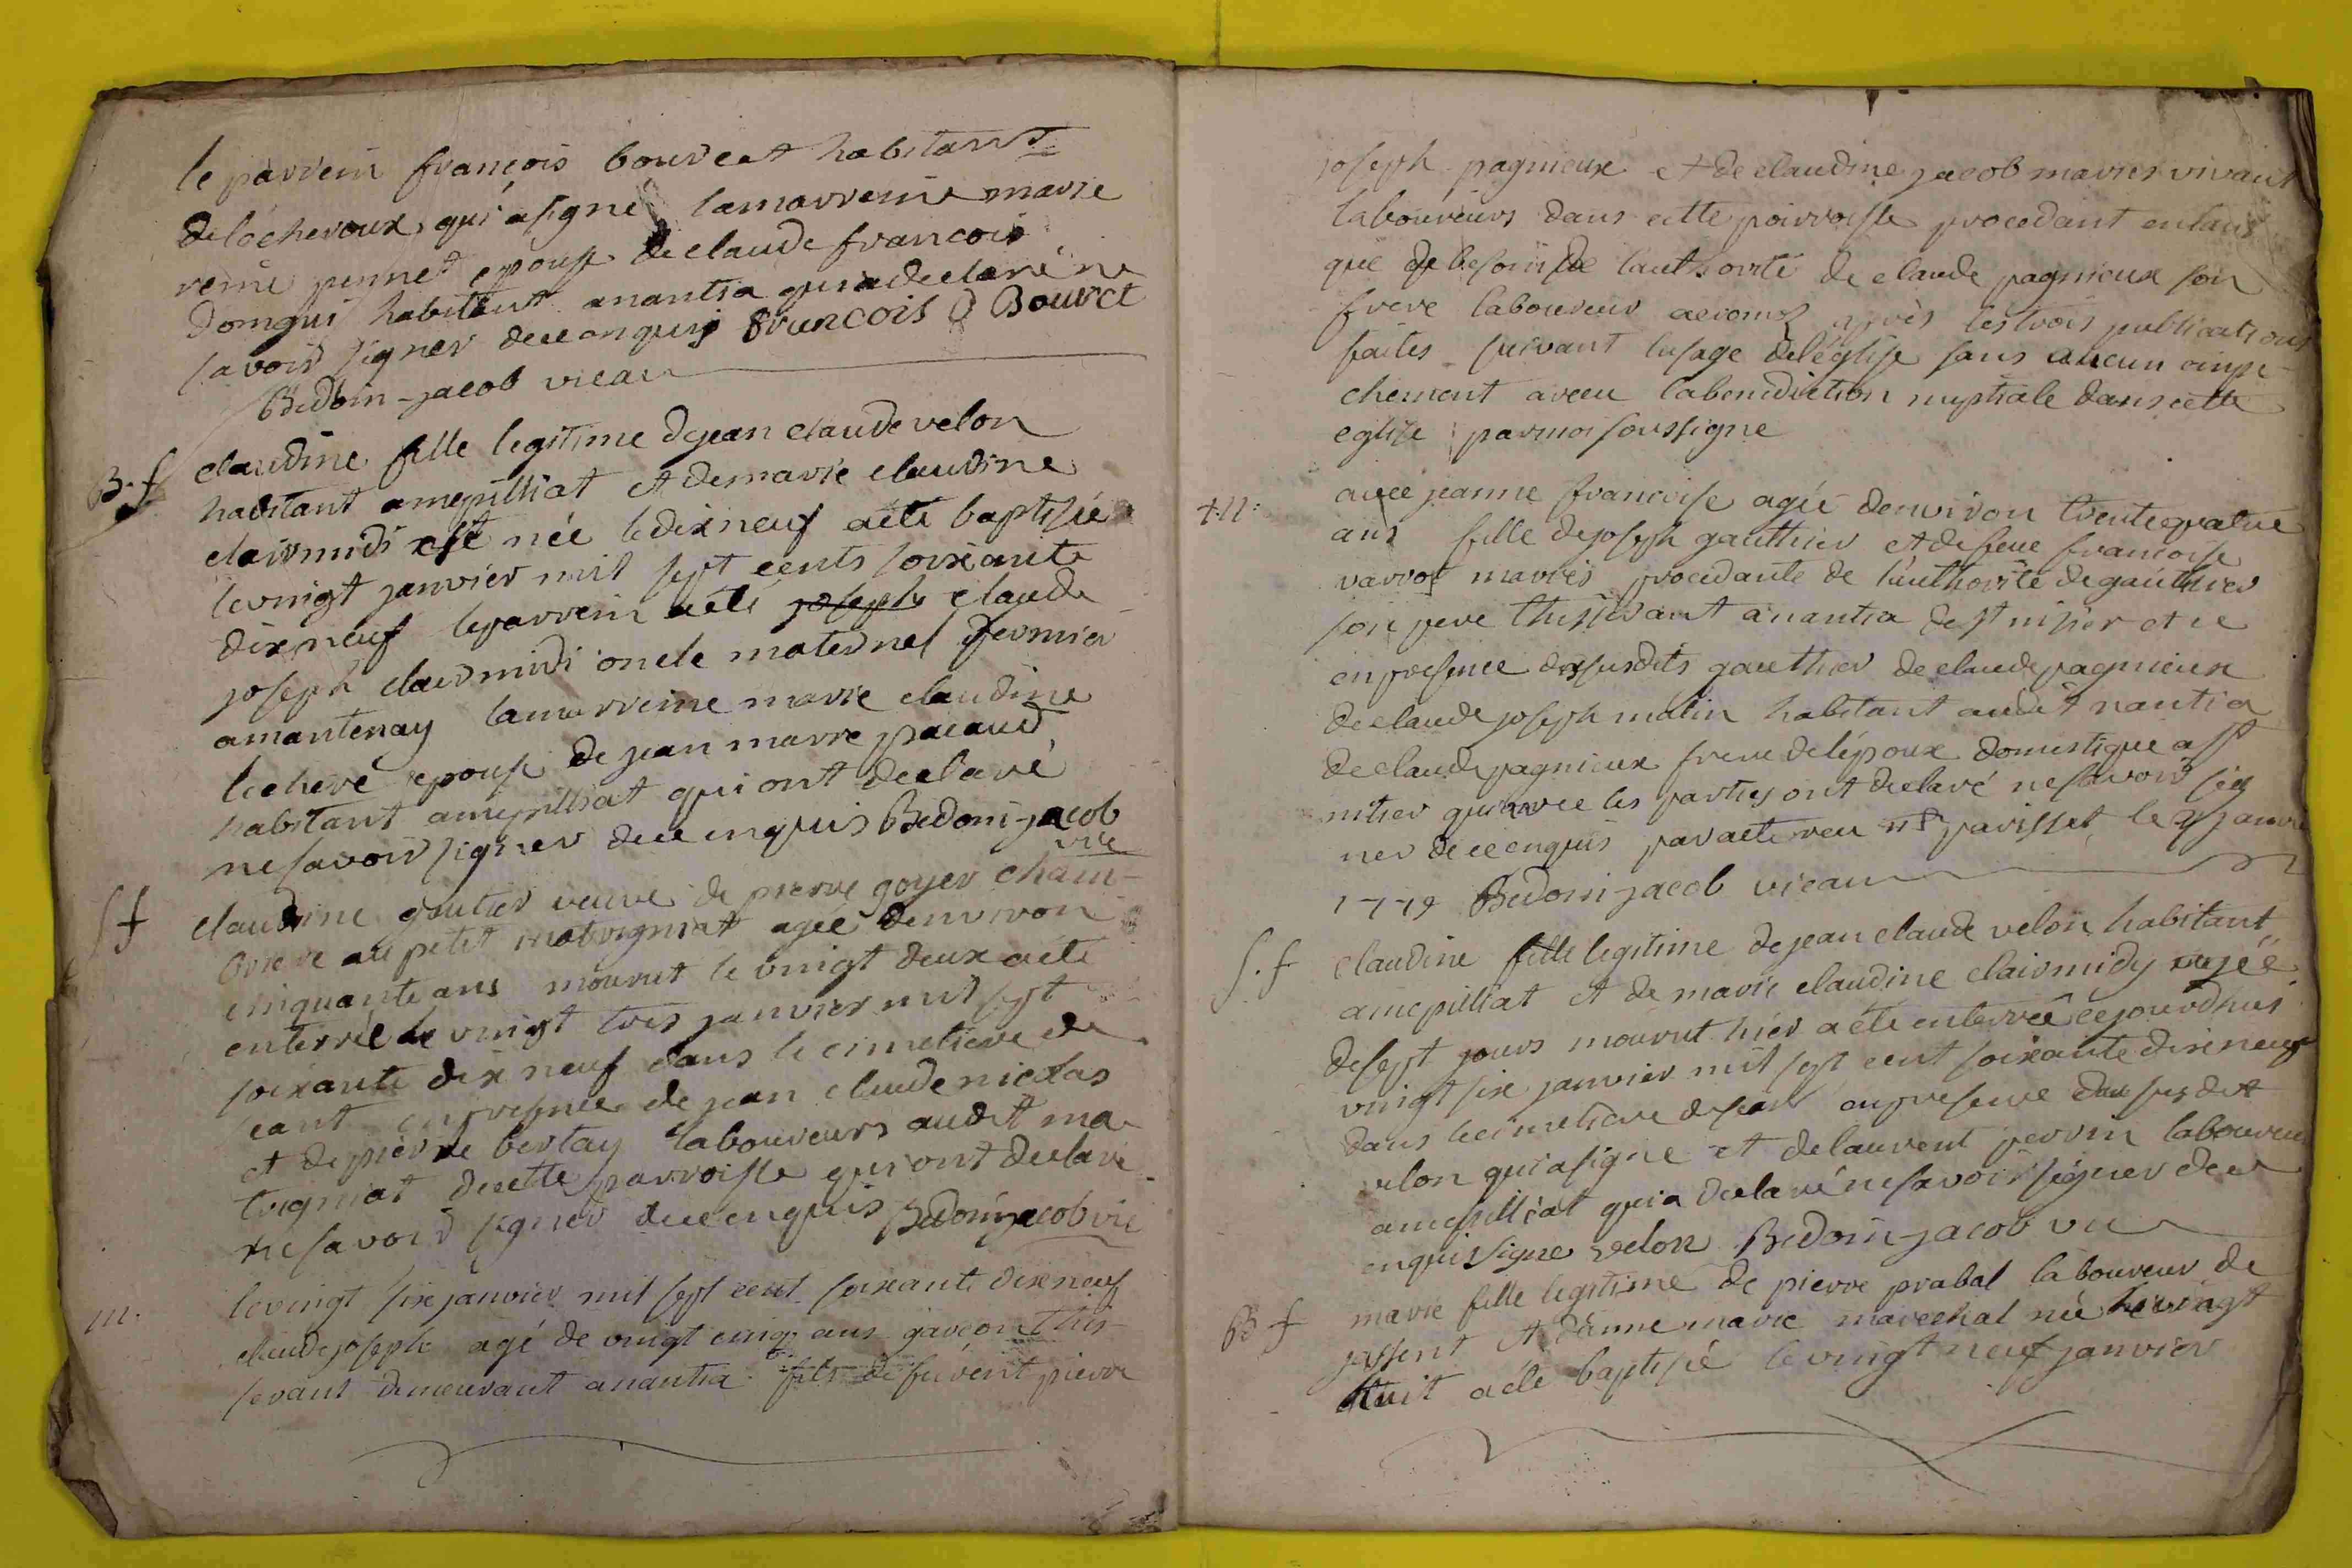 le parrein françois bouveat habitant
de lócheroux qui a signé lamarreine marie
reine junnet epouse de claude francois
Domgui habitant anantia qui a declaré ne
savoir signer dece enquis francois Bouvet
Bedoin-jacob vicau
B.f claudine fille legitime dejean claude velon
habitant amepilliat et demarie claudine
clairmidi est née ledixneuf aété baptisée
levingt janvier mil sept cents soixante
dixneuf leparrein aété joseph claude
joseph clairmidi oncle maternel fermier
amantenay lamarreine marie claudine
lecheré epouse de jean marie pacaud
habitant amepilliat qui ont declaré
nesavoir signer dece enquis Bedoin-jacob
vic
S f claudine goutier veuve de pierre goyer cham-
briere au petit matrigniat agée denviron
cinquante ans mourut le vingt deux aété
enterrée le vingt trois janvier mil sept
soixante dix neuf dans le cimetiere de
ceant en presence de jean claude nicolas
et de pierre bertay laboureurs audit ma-
trigniat decette parroisse qui ont declaré
ne savoir signer dece enquis Bedoin jacob vic
m. levingt six janvier mil sept cent soixante dixneuf
claude joseph agé de vingt cinq ans garçon this-
serant demeurant anantia fils de furent pierre
joseph pagnieux et de claudine jacob mariés vivant
laboureurs dans cette parroisse procedant entant
que de besoin de lauthorité de claude pagnieux son
frere laboureur après les trois publications
faites suivant lusage deléglise sans aucun empe-
chement a receu labenediction nuptiale dans cette
eglise parmoi soussigne
avec jeanne francoise agée denviron trentequatre
ans fille dejoseph gauthier et defeue francoise
varrot mariés procedante de lauthorité degauthier
son pere thisserant anantia de st nisier et ce
en presence des susdits gauthier de claude pagnieux
de claude joseph matin habitant audit nantia
de claude pagnieux frere delépoux domestique a st
nisier qui avec les parties ont declaré nesavoir sig
ner de ce enquis par acte receu parisset le janvie
1779 Bedoin jacob vicau
S.f claudine fille legitime dejean claude velon habitant
amepilliat et de marie claudine clairmidy agée
desept jours mourut hier a été enterrée cejourdhui
vingt six janvier mil sept cent soixante dixneuf
dans lecimetiere deceant en presence du susdit
velon qui a signe et delaurent perrin laboureur
amepilliat qui a declaré nesavoir signer de ce
enquis signe velon Bedoin-jacob vic
B f marie fille legitime de pierre prabal laboureur de
jassent et danne marie marechal née le vingt
huit aété baptisé le vingt neuf janvier